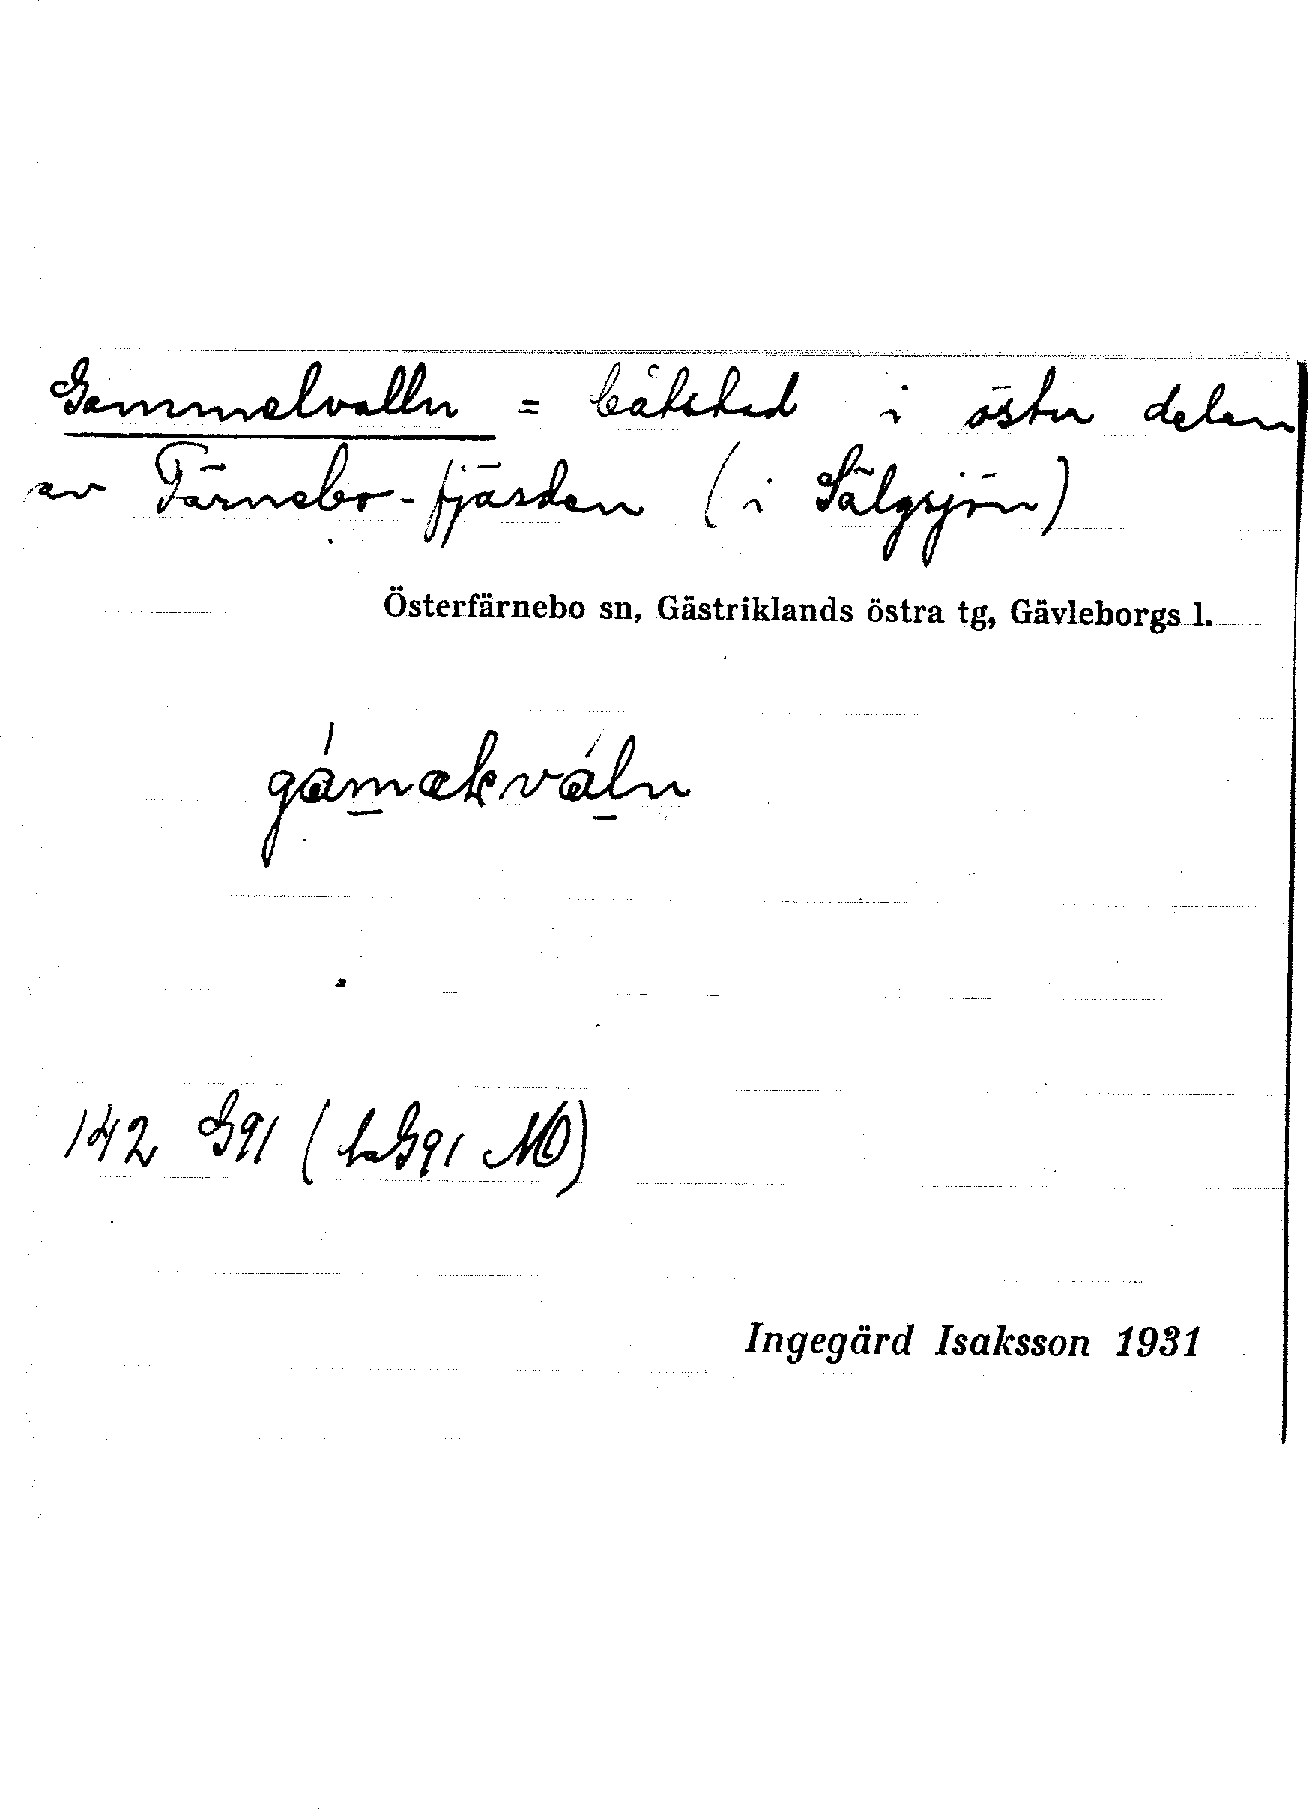 Gammelvalln = båtstad i östra delen
av Färnebo-fjärden (i Sälgsjön)
Österfärnebo sn, Gästriklands östra tg, Gävleborgs l.
gámækváln
142 G91 ( G91 MO)
Ingegärd Isaksson 1931